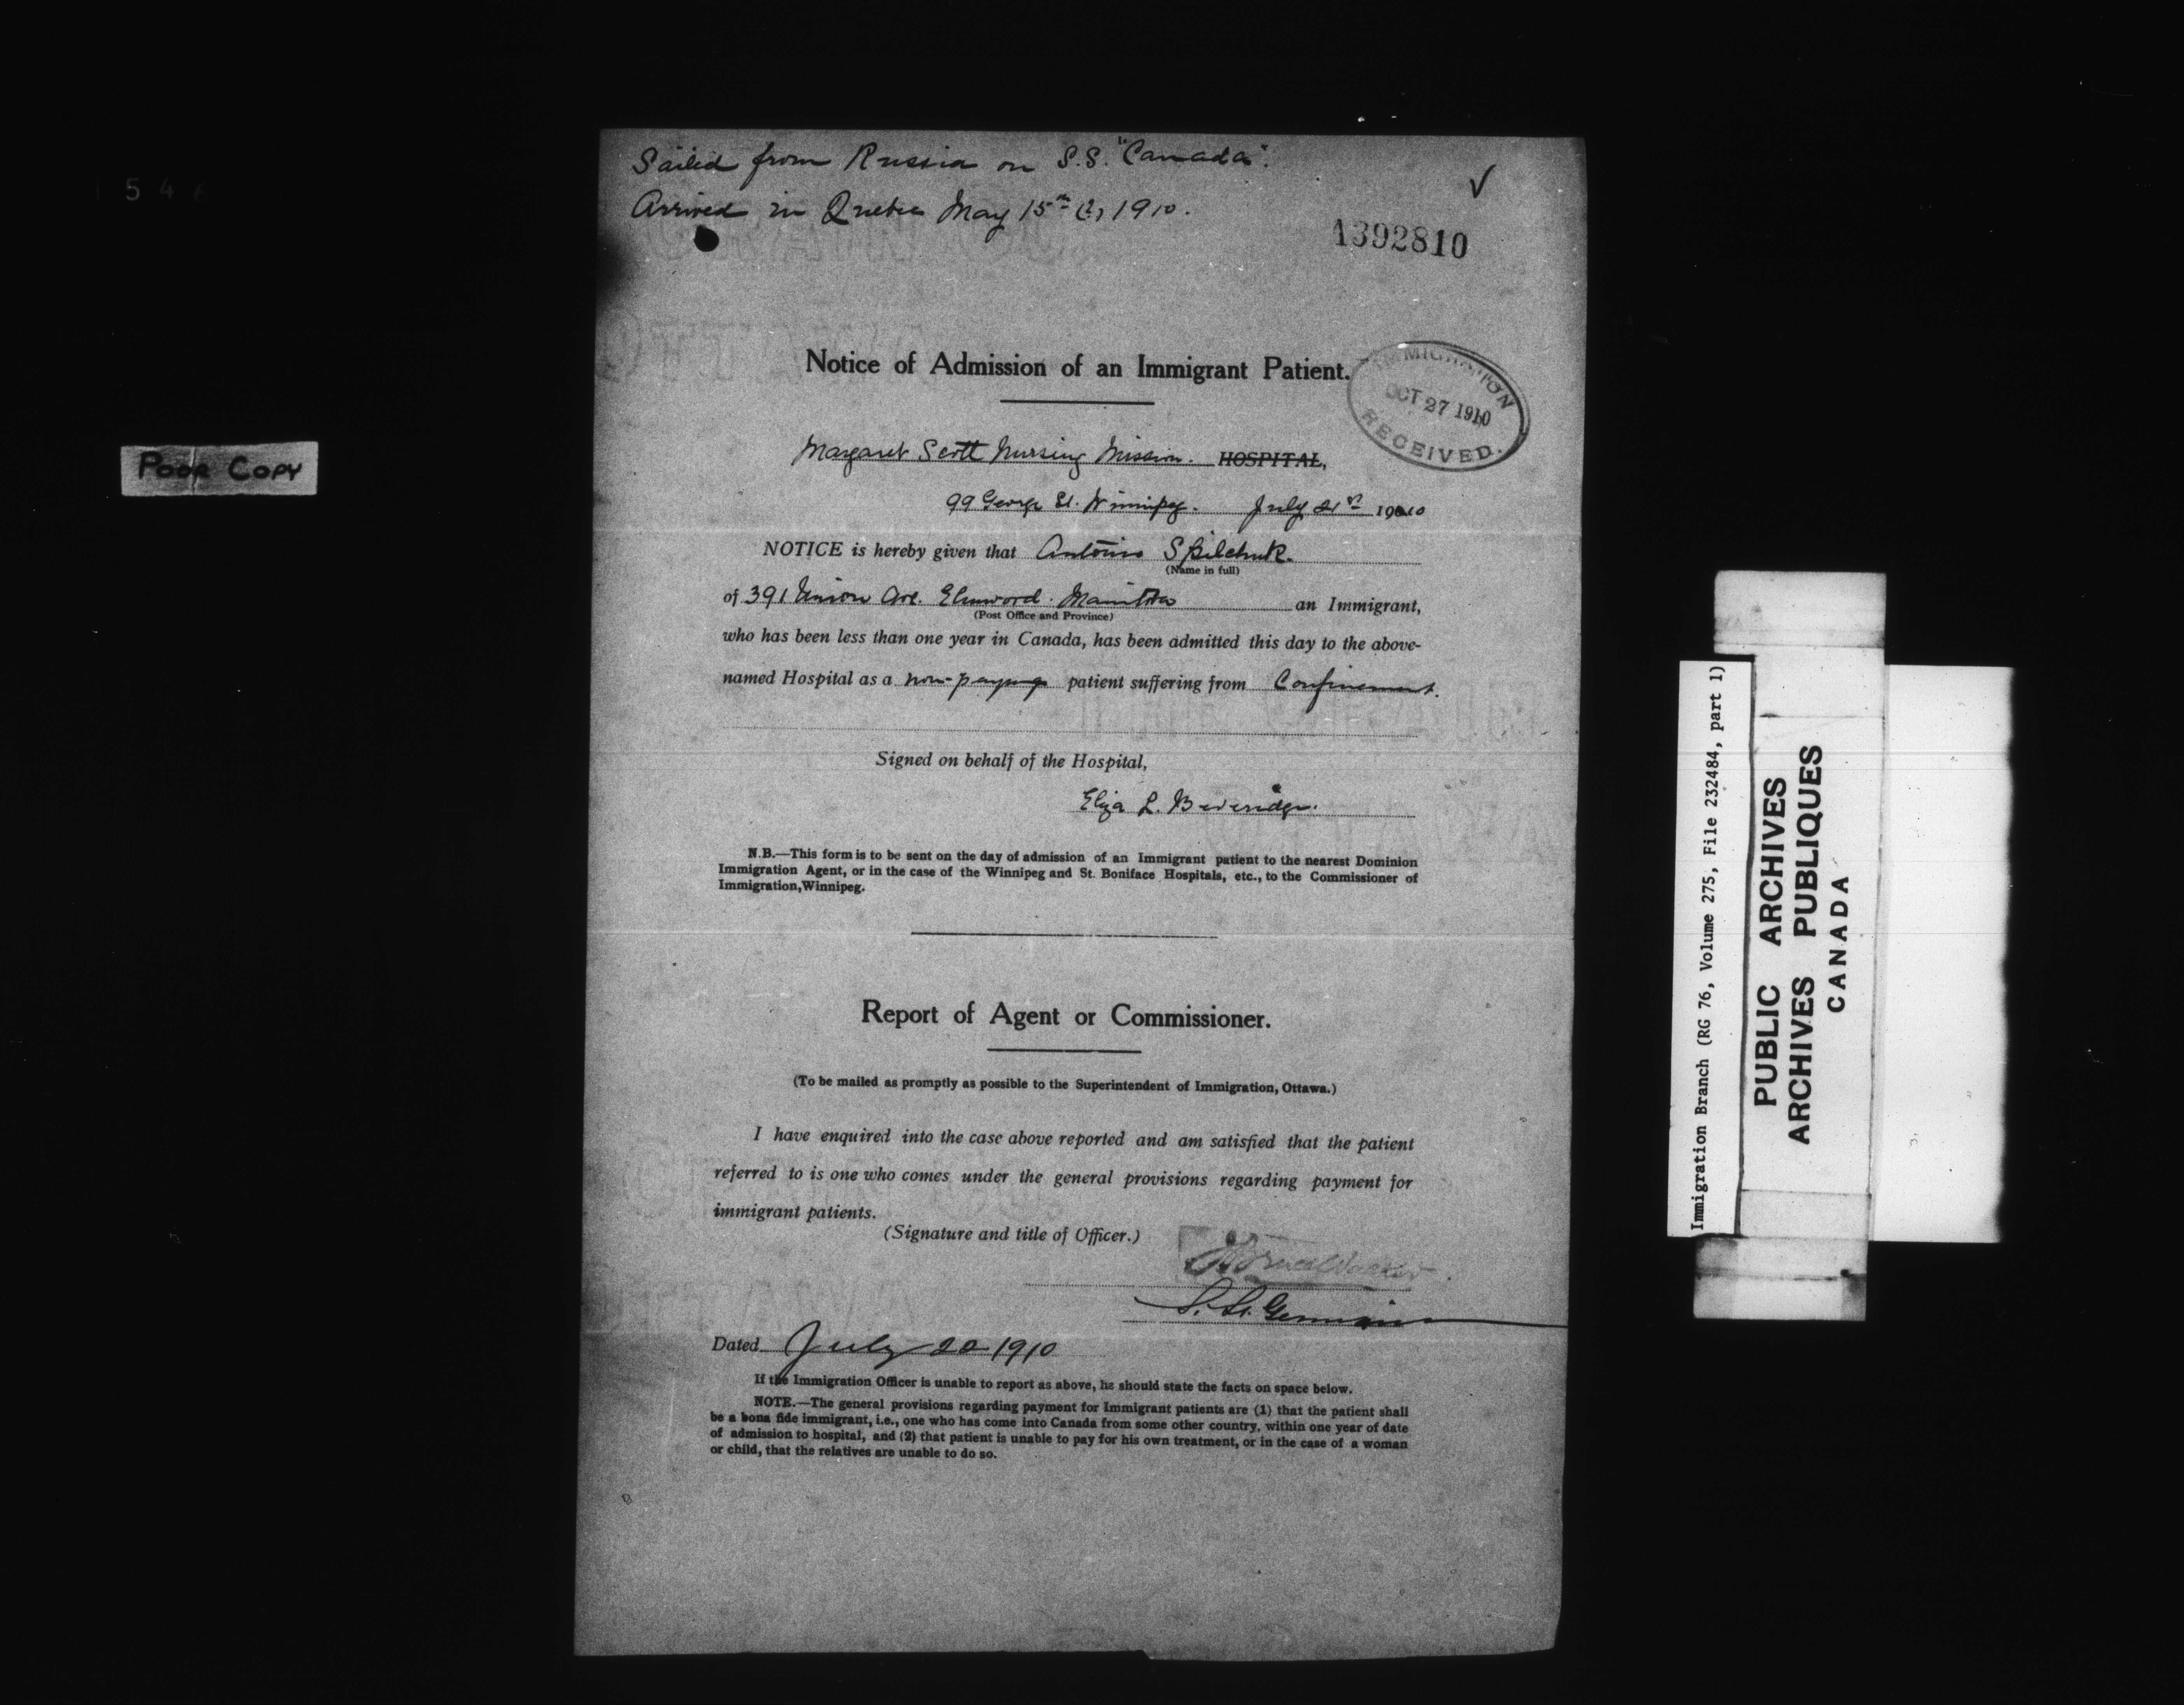 Sailed from Russia on S.S. "Canada".
Arrived in Quebec May 15th (?) 1910.
✓
1392810
5 4
Notice of Admission of an Immigrant Patient.
IMMIGRATION
OCT 27 1910
RECEIVED.
POOR COPY
Margaret Scott Nursing Mission. HOSPITAL,
99 George St. Winnipeg. July 21st 1910
NOTICE is hereby given that Antonio Spilchuk.
(Name in full)
of 391 Union Ave. Elmwood. Manitoba an Immigrant,
(Post Office and Province)
who has been less than one year in Canada, has been admitted this day to the above-
named Hospital as a non-paying patient suffering from Confinement.
Signed on behalf of the Hospital,
Eliza L. Beveridge.
N.B.—This form is to be sent on the day of admission of an Immigrant patient to the nearest Dominion
Immigration Agent, or in the case of the Winnipeg and St. Boniface Hospitals, etc., to the Commissioner of
Immigration, Winnipeg.
Report of Agent or Commissioner.
(To be mailed as promptly as possible to the Superintendent of Immigration, Ottawa.)
I have enquired into the case above reported and am satisfied that the patient
referred to is one who comes under the general provisions regarding payment for
immigrant patients.
(Signature and title of Officer.)
J Bruce Walker
Germain
Dated July 20 1910
If the Immigration Officer is unable to report as above, he should state the facts on space below.
NOTE.—The general provisions regarding payment for Immigrant patients are (1) that the patient shall
be a bona fide immigrant, i.e., one who has come into Canada from some other country, within one year of date
of admission to hospital, and (2) that patient is unable to pay for his own treatment, or in the case of a woman
or child, that the relatives are unable to do so.
Immigration Branch (RG 76, Volume 275, File 232484, part 1)
PUBLIC ARCHIVES
ARCHIVES PUBLIQUES
CANADA